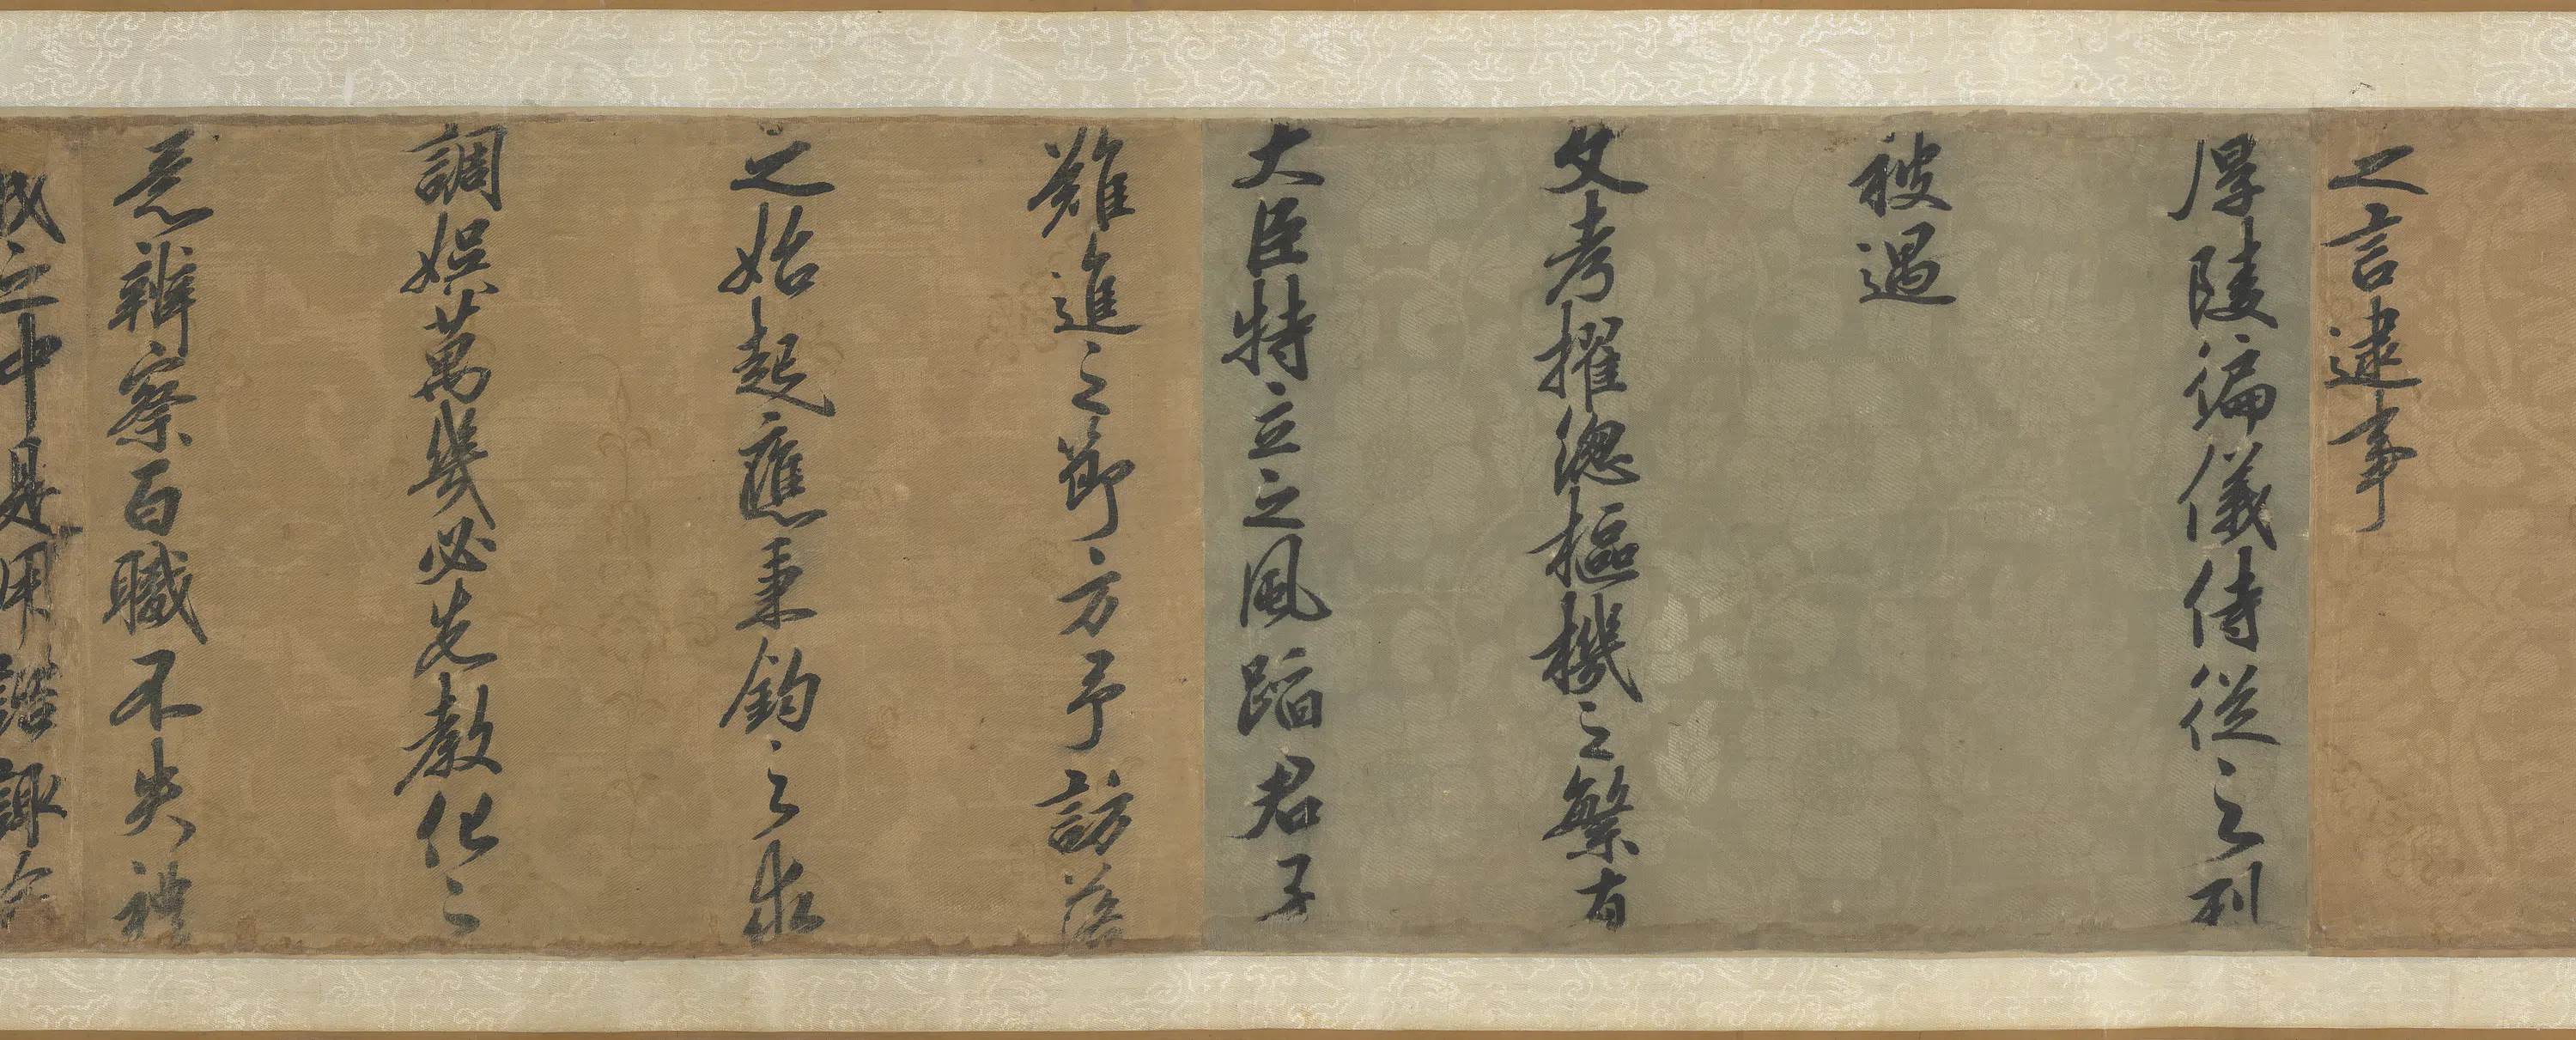 之言逮事
厚陵徧儀侍從之列
被遇
文考擢總樞機之繁有
大臣特立之風蹈君子
難進之節方予訪落
之始起應秉鈞之求
調娛萬幾必先教化之
意辨察百職不失禮
之中是用諮諏